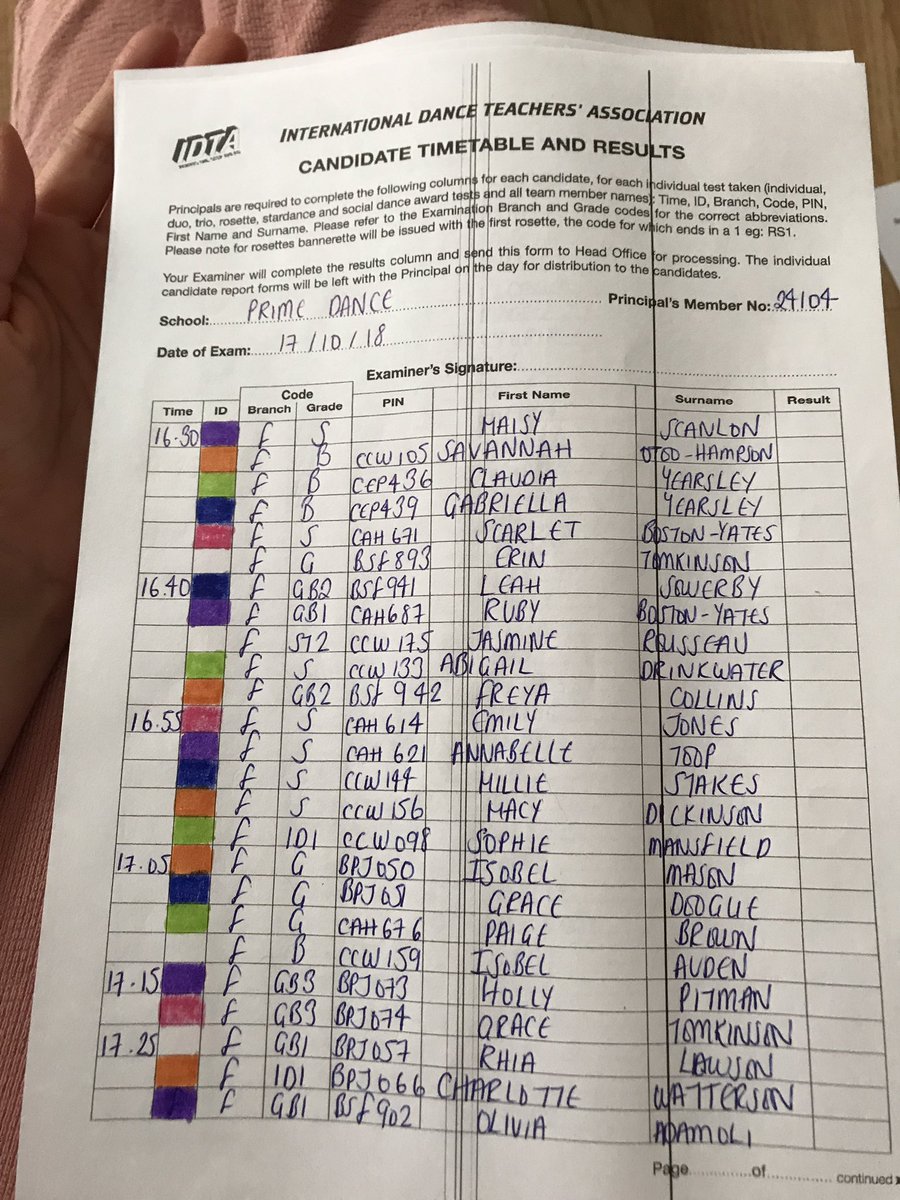 IDTA
INTERNATIONAL DANCE TEACHERS' ASSOCIATION
CANDIDATE TIMETABLE AND RESULTS
Principals are required to complete the following columns for each candidate, for each individual test taken (individual,
duo, trio, rosette, stardance and social dance award tests and all team member names): Time, ID, Branch, Code, PIN,
First Name and Surname. Please refer to the Examination Branch and Grade codes for the correct abbreviations.
Please note for rosettes bannerette will be issued with the first rosette, the code for which ends in a 1 eg: RS1.
Your Examiner will complete the results column and send this form to Head Office for processing. The individual
candidate report forms will be left with the Principal on the day for distribution to the candidates.
School: PRIME DANCE Principal's Member No: 24104
Date of Exam: 17/10/18
Examiner's Signature:
Time ID Code Branch Grade PIN First Name Surname Result
16.30 F S MAISY SCANLON
F B CCW105 SAVANNAH OTOO-HAMPSON
F B CEP436 CLAUDIA YEARSLEY
F B CEP439 GABRIELLA YEARSLEY
F S CAH671 SCARLET BOSTON-YATES
F G BSF893 ERIN TOMKINSON
16.40 F GB2 BSF941 LEAH SOWERBY
F GB1 CAH687 RUBY BOSTON-YATES
F ST2 CCW175 JASMINE ROUSSEAU
F S CCW133 ABIGAIL DRINKWATER
F GB2 BSF942 FREYA COLLINS
16.55 F S CAH614 EMILY JONES
F S CAH621 ANNABELLE TOOP
F S CCW144 MILLIE STAKES
F S CCW156 MACY DICKINSON
F ID1 CCW098 SOPHIE MANSFIELD
17.05 F G BPJ050 ISOBEL MASON
F G GRACE DOOGUE
F G CAH676 PAIGE BROWN
F B CCW159 ISOBEL AUDEN
17.15 F GB3 BPJ073 HOLLY PITMAN
F GB3 BPJ074 GRACE TOMKINSON
17.25 F GB1 BPJ057 RHIA LAWSON
F ID1 BPJ066 CHARLOTTE WATTERSON
F GB1 BSF902 OLIVIA ADAMOLI
Page of continued